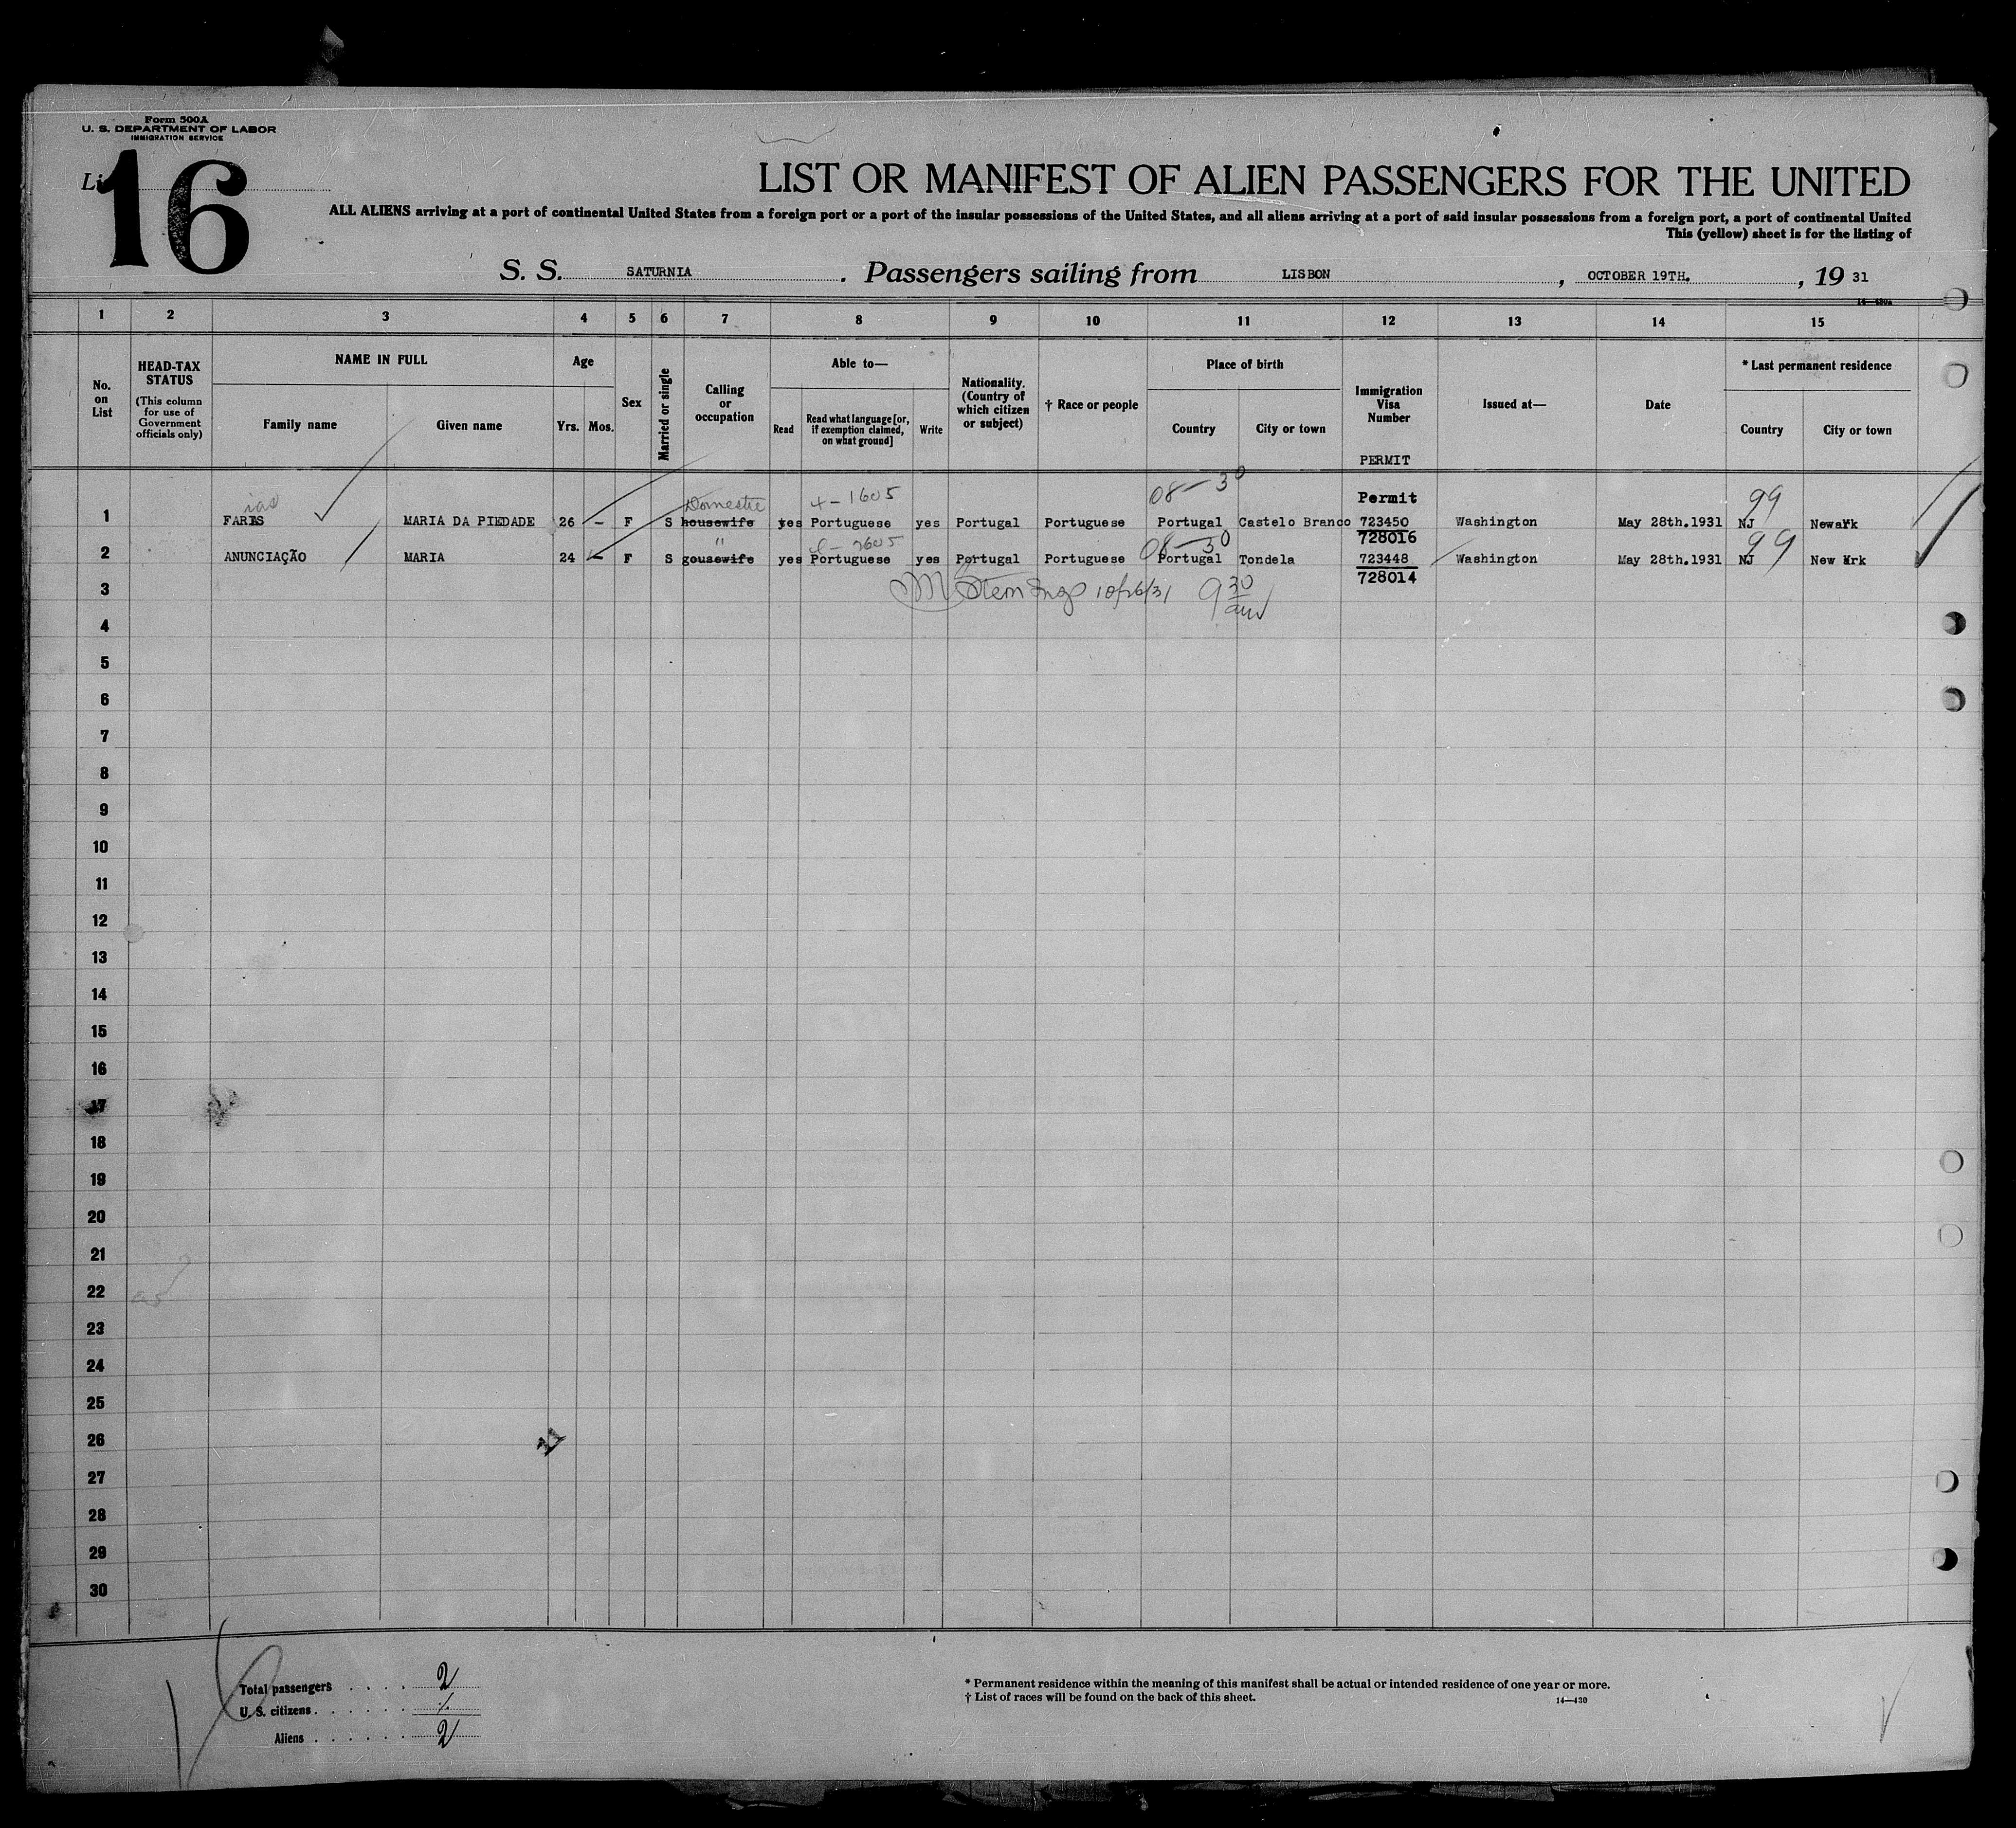 Form 500A
U. S. DEPARTMENT OF LABOR
IMMIGRATION SERVICE
16
LIST OR MANIFEST OF ALIEN PASSENGERS FOR THE UNITED
ALL ALIENS arriving at a port of continental United States from a foreign port or a port of the insular possessions of the United States, and all aliens arriving at a port of said insular possessions from a foreign port, a port of continental United
This (yellow) sheet is for the listing of
S. S. SATURNIA. Passengers sailing from LISBON, OCTOBER 19TH., 19 31
1 2 3 4 5 6 7 8 9 10 11 12 13 14 15
No. on List
HEAD-TAX STATUS
(This column for use of Government officials only)
NAME IN FULL
Family name Given name
Age
Yrs. Mos.
Sex
Married or single
Calling or occupation
Able to—
Read
Read what language [or, if exemption claimed, on what ground]
Write
Nationality. (Country of which citizen or subject)
† Race or people
Place of birth
Country City or town
Immigration Visa Number
PERMIT
Issued at—
Date
* Last permanent residence
Country City or town
ias Domestic 4-1605 08-30 Permit 99
1 FARIS MARIA DA PIEDADE 26 – F S housewife yes Portuguese yes Portugal Portuguese Portugal Castelo Branco 723450 Washington May 28th.1931 NJ Newark
" 08-30 728016 99
2 ANUNCIAÇÃO MARIA 24 – F S gousewife yes Portuguese yes Portugal Portuguese Portugal Tondela 723448 Washington May 28th.1931 NJ New
728014
3 10/26/31 9 30 am
4
5
6
7
8
9
10
11
12
13
14
15
16
17
18
19
20
21
22
23
24
25
26
27
28
29
30
Total passengers . . . . 2
U. S. citizens . . . . . .
Aliens . . . . . . 2
* Permanent residence within the meaning of this manifest shall be actual or intended residence of one year or more.
† List of races will be found on the back of this sheet. 14—430